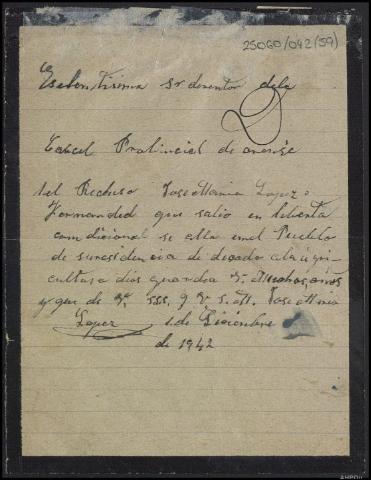 25060/042(59)
Eselentisima Sr dirertor dela
Carcel Prolincial de orense
del Recluso Jose Maria Lopez
Fernanded que salio en liberta
comdicional se alla emel Pueblo
de suresidencia de dicado ala agri-
cultura dios guardia V. Muchos, anos
y que de V. SSS, q V. S. M. Jose Maria
Lopez 1 de Diciembre
de 1942
AHPOU